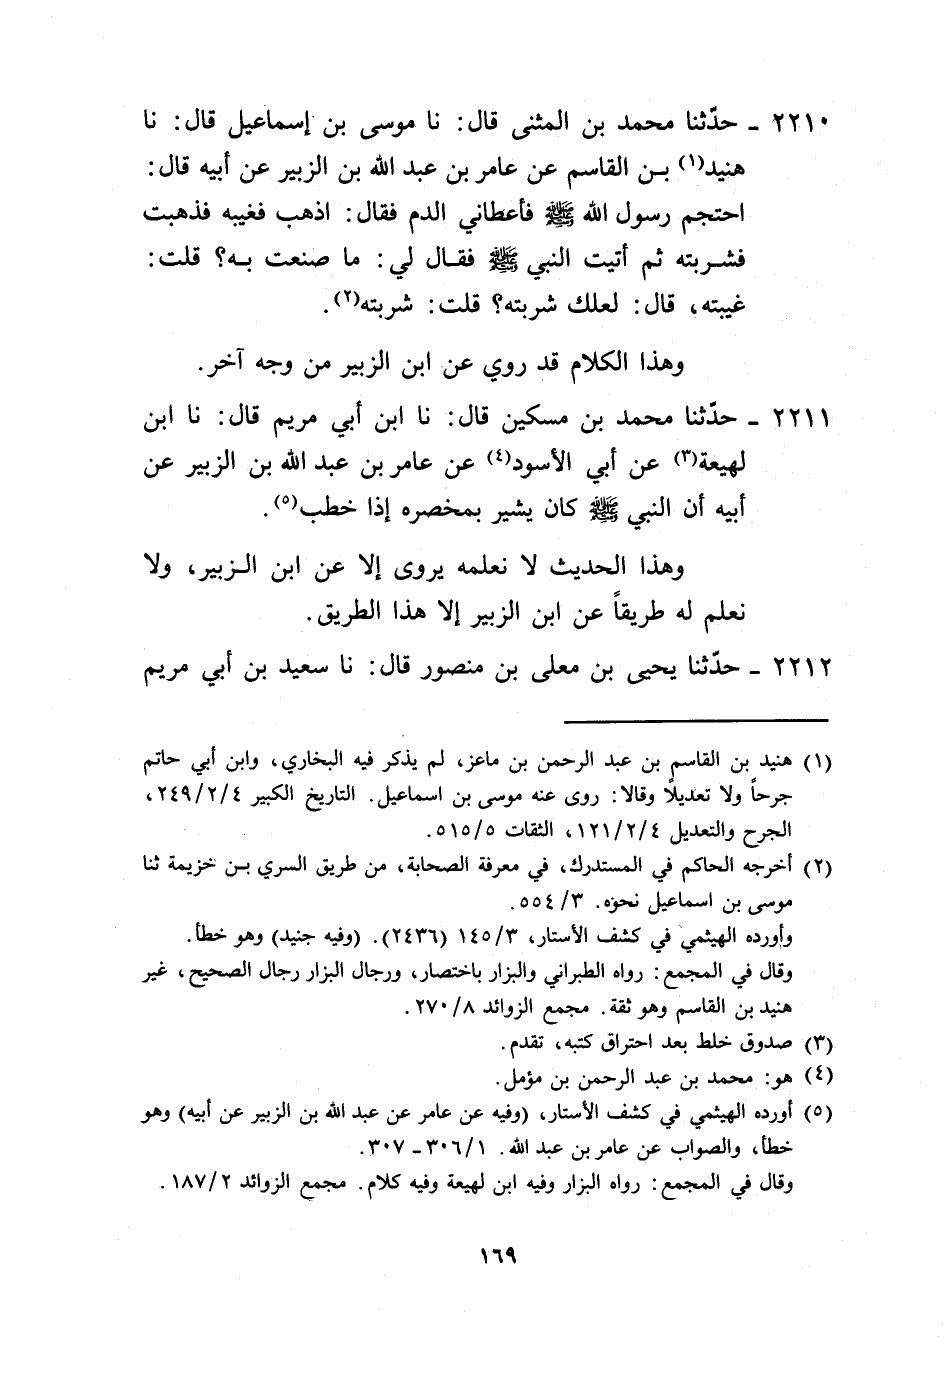 ٢٢١٠ ـ حدّثنا محمد بن المثنى قال: نا موسى بن إسماعيل قال: نا
هنيد(١) بـن القاسم عن عامر بن عبد الله بن الزبير عن أبيه قال:
احتجم رسول الله ﷺ فأعطاني الدم فقال: اذهب فغيبه فذهبت
فشـربته ثم أتيت النبي ﷺ فقـال لي: ما صنعت بـه؟ قلت:
غيبته، قال: لعلك شربته؟ قلت: شربته(٢).
وهذا الكلام قد روي عن ابن الزبير من وجه آخر.
٢٢١١ ـ حدّثنا محمد بن مسكين قال: نا ابن أبي مريم قال: نا ابن
لهيعة(٣) عن أبي الأسود(٤) عن عامر بن عبد الله بن الزبير عن
أبيه أن النبي ﷺ كان يشير بمخصره إذا خطب(٥).
وهذا الحديث لا نعلمه يروى إلا عن ابن الـزبير، ولا
نعلم له طريقاً عن ابن الزبير إلا هذا الطريق.
٢٢١٢ ـ حدّثنا يحيى بن معلى بن منصور قال: نا سعيد بن أبي مريم
(١) هنيد بن القاسم بن عبد الرحمن بن ماعز، لم يذكر فيه البخاري، وابن أبي حاتم
جرحاً ولا تعديلاً وقالا: روى عنه موسى بن اسماعيل. التاريخ الكبير ٢٤٩/٢/٤،
الجرح والتعديل ١٢١/٢/٤، الثقات ٥١٥/٥.
(٢) أخرجه الحاكم في المستدرك، في معرفة الصحابة، من طريق السري بـن خزيمة ثنا
موسى بن اسماعيل نحوه. ٥٥٤/٣.
وأورده الهيثمي في كشف الأستار، ١٤٥/٣ (٢٤٣٦). (وفيه جنيد) وهو خطأ.
وقال في المجمع: رواه الطبراني والبزار باختصار، ورجال البزار رجال الصحيح، غير
هنيد بن القاسم وهو ثقة. مجمع الزوائد ٢٧٠/٨.
(٣) صدوق خلط بعد احتراق كتبه، تقدم.
(٤) هو: محمد بن عبد الرحمن بن مؤمل.
(٥) أورده الهيثمي في كشف الأستار، (وفيه عن عامر عن عبد الله بن الزبير عن أبيه) وهو
خطأ، والصواب عن عامر بن عبد الله. ٣٠٦/١ ـ ٣٠٧.
وقال في المجمع: رواه البزار وفيه ابن لهيعة وفيه كلام. مجمع الزوائد ١٨٧/٢.
١٦٩